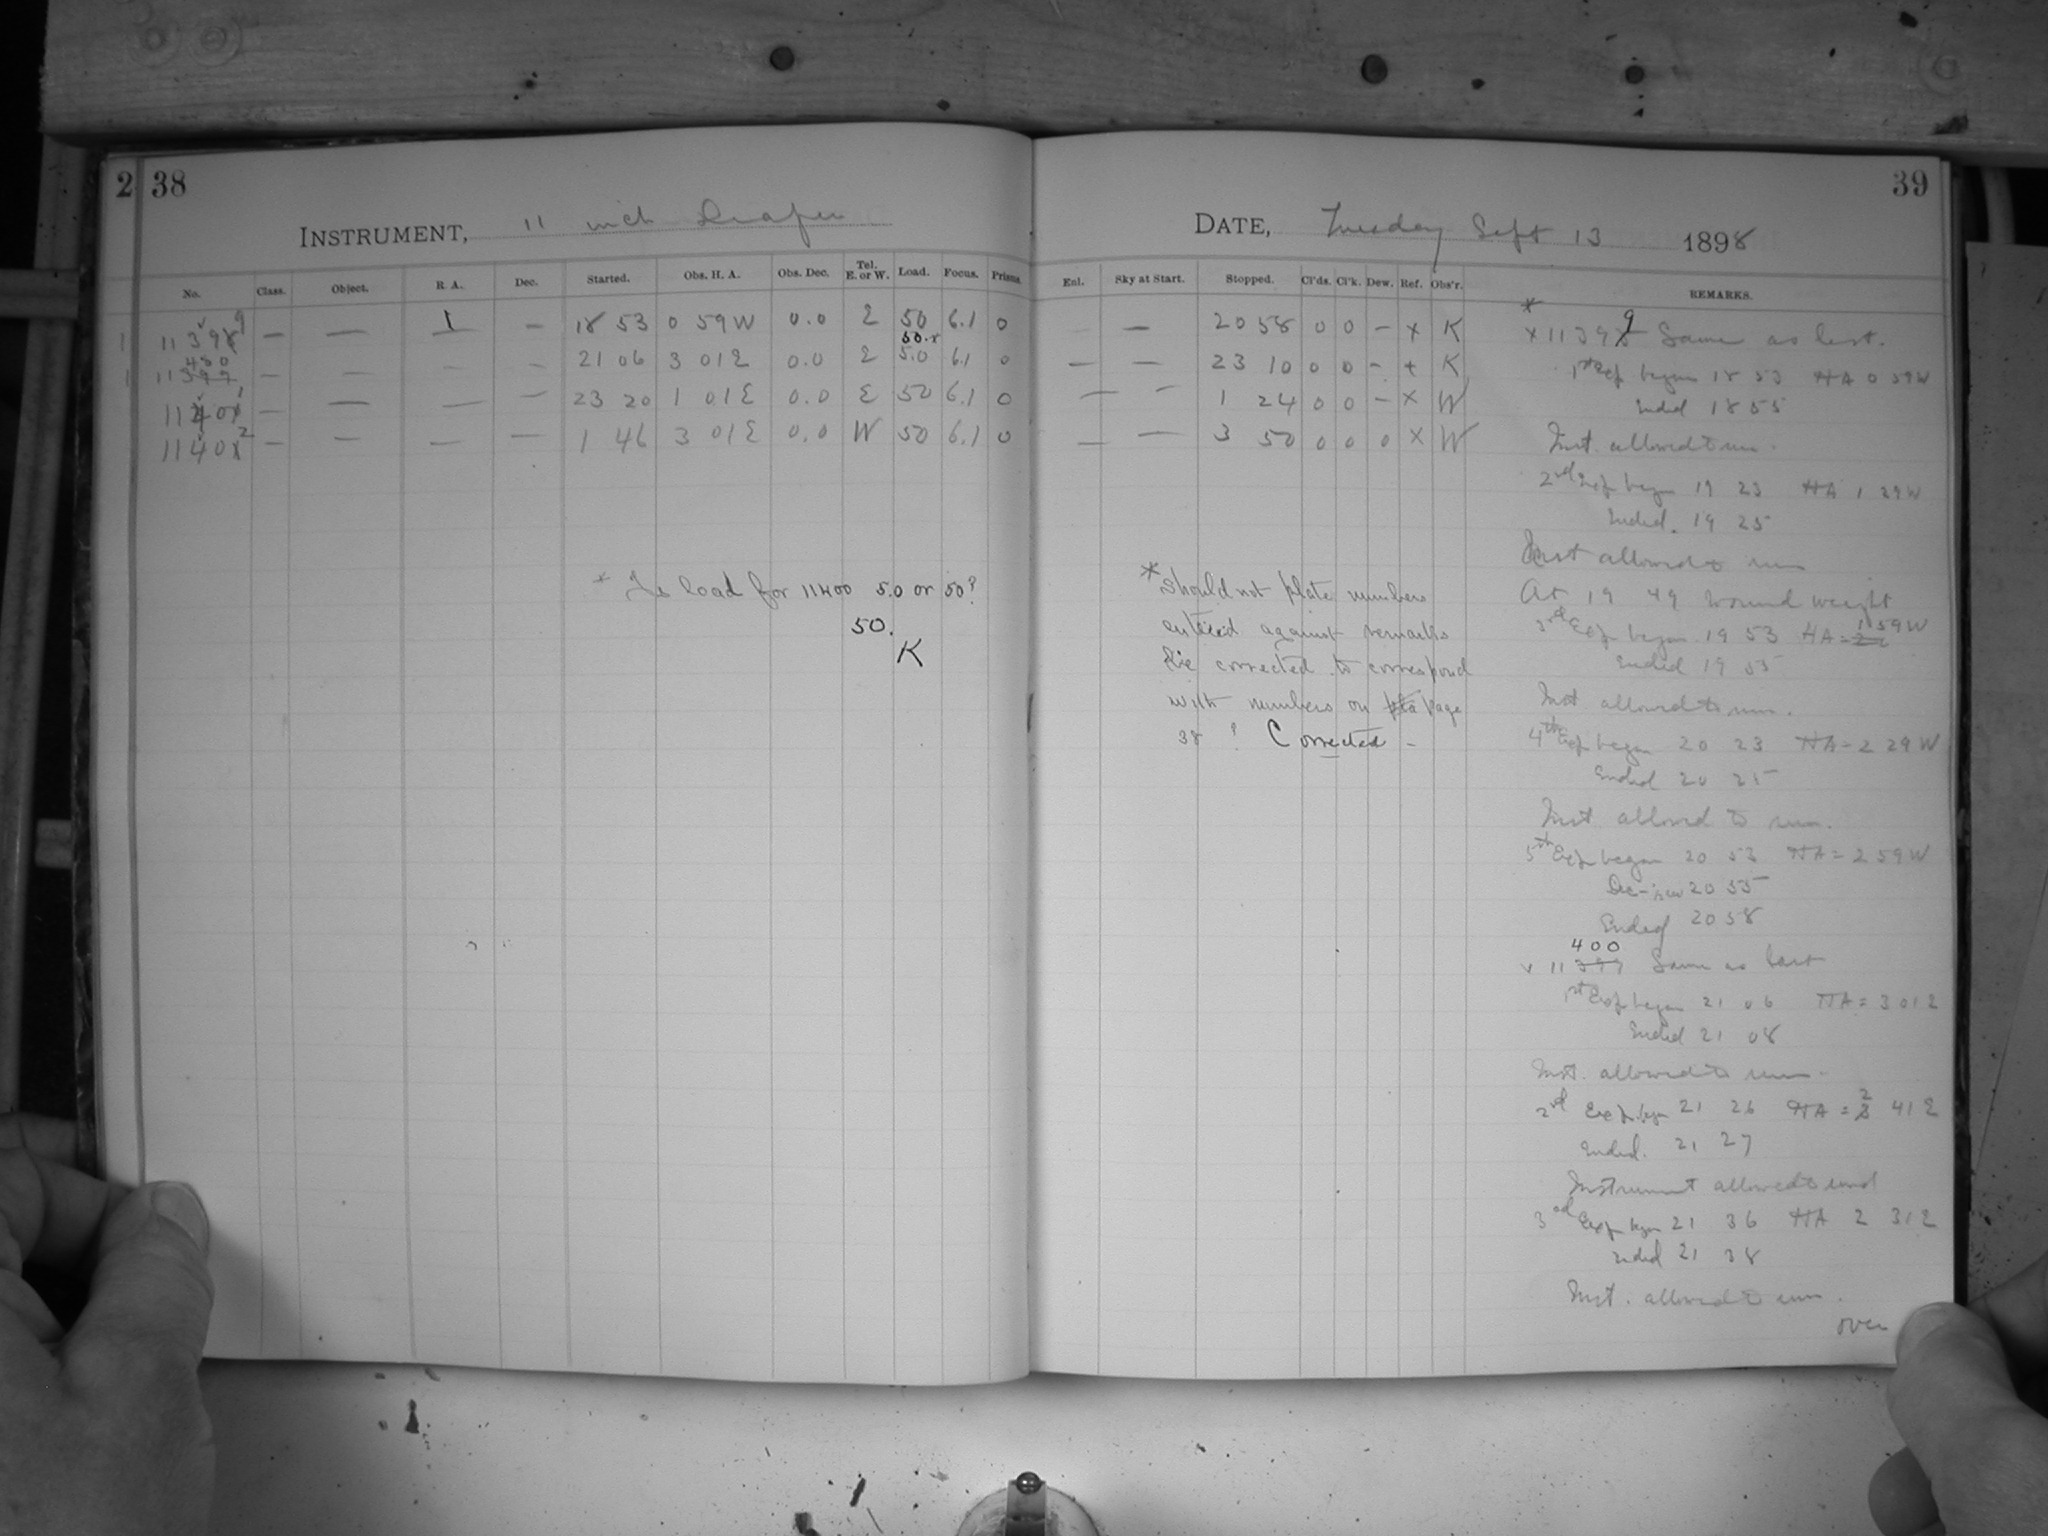 2 38
INSTRUMENT, 11 inch Draper
No. Class. Object. R. A. Dec. Started. Obs. H. A. Obs. Dec. Tel. E. or W. Load. Focus. Prisms
1 11398 9 — — 1 — 18 53 0 59 W 0.0 E 50 6.1 0
50.x
1 11399 400 — — — — 21 06 3 01 E 0.0 E 5.0 6.1 0
11401 — — — — 23 20 1 01 E 0.0 E 50 6.1 0
11402 — — — — 1 46 3 01 E 0.0 W 50 6.1 0
* Is load for 11400 5.0 or 50?
50.
K
39
DATE, Tuesday Sept 13 1898
Enl. Sky at Start. Stopped. Cl'ds. Cl'k. Dew. Ref. Obs'r. REMARKS.
— 20 58 0 0 — x K
— — 23 10 0 0 — + K
— — 1 24 0 0 — x W
— — 3 50 0 0 0 x W
* Should not plate numbers
entered against remarks
be corrected to correspond
with numbers on page
38 ? Corrected —
*
x 11398 9 Same as last.
1st Exp began 18 53 HA 0 59 W
Ended 18 55
Inst. allowed to run.
2nd Exp began 19 23 HA 1 29 W
Ended. 19 25
Inst allowed to run
At 19 49 wound weight
3rd Exp began 19 53 HA = 1 59 W
Ended 19 55
Inst allowed to run.
4th Exp began 20 23 HA = 2 29 W
Ended 20 25
Inst allowed to run.
5th Exp began 20 53 HA = 2 59 W
20 55
Ended 20 58
400
x 11399 Same as last
1st Exp began 21 06 HA = 3 01 E
Ended 21 08
Inst. allowed to run.
2nd Exp began 21 26 HA = 2 41 E
Ended. 21 27
Instrument allowed to run
3rd Exp began 21 36 HA 2 31 E
Ended 21 38
Inst. allowed to run.
over